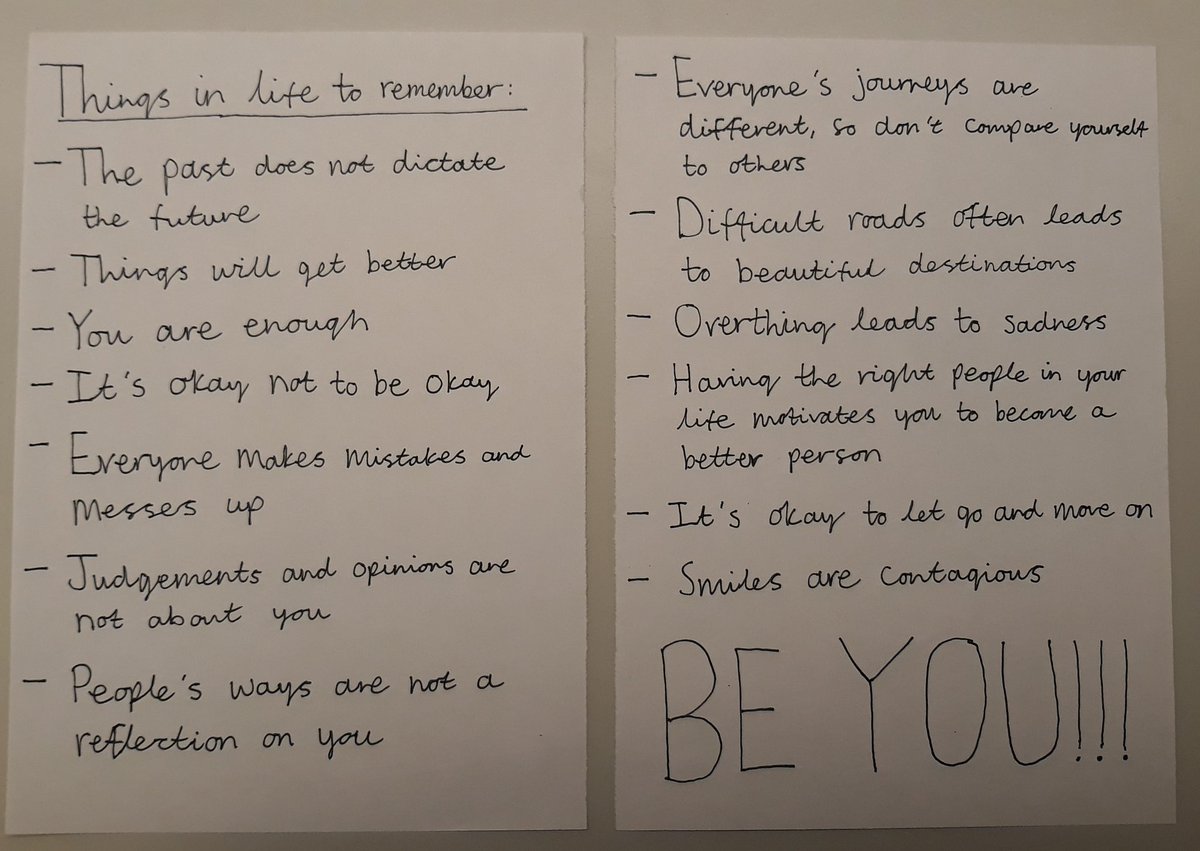 Things in life to remember:
- The past does not dictate
the future
- Things will get better
- You are enough
- It's okay not to be okay
- Everyone makes mistakes and
messes up
- Judgements and opinions are
not about you
- People's ways are not a
reflection on you
- Everyone's journeys are
different, so don't compare yourself
to others
- Difficult roads often leads
to beautiful destinations
- Overthing leads to sadness
- Having the right people in your
life motivates you to become a
better person
- It's okay to let go and move on
- Smiles are contagious
BE YOU!!!